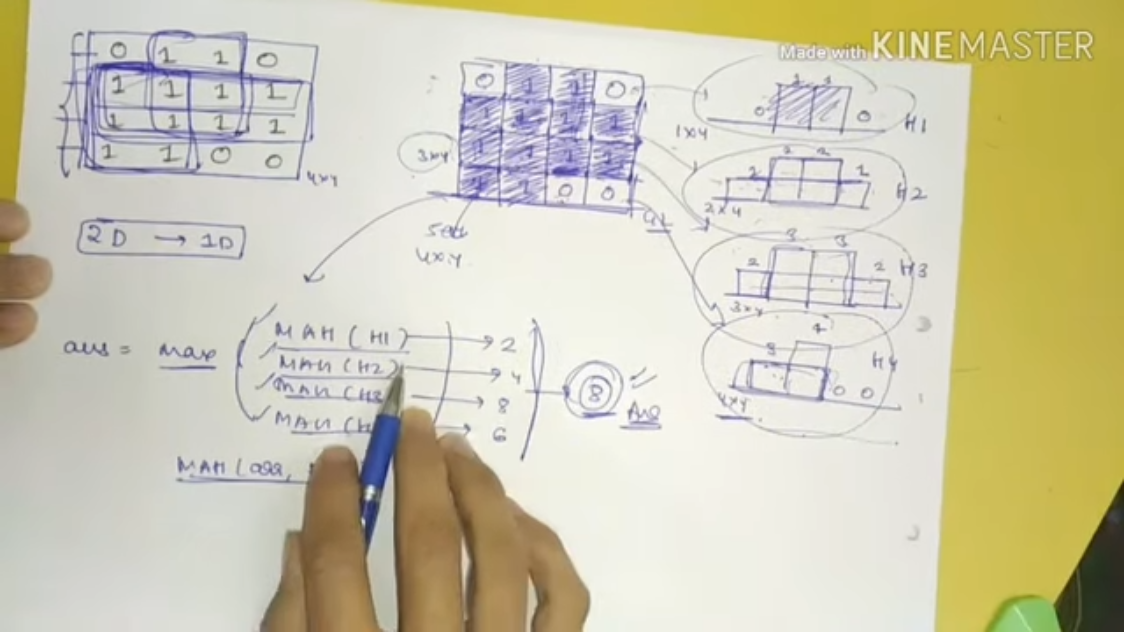 Made with KINEMASTER
0 1 1 0
1 1 1 1
1 1 1 1
1 1 0 0
4x4
2D → 1D
0 1 1 0
1 1 1 1
1 1 1
1 1 0 0
3x4
4x4
1 1
0 0
H1
1x4
2 2
1 1
H2
2x4
3 3
2 2
H3
3x4
4
3
0 0
H4
4x4
ans = max
MAH (H1) → 2
MAH (H2) → 4
MAH (H3 → 8
MAH (H → 6
8
Ans
MAH (arr,